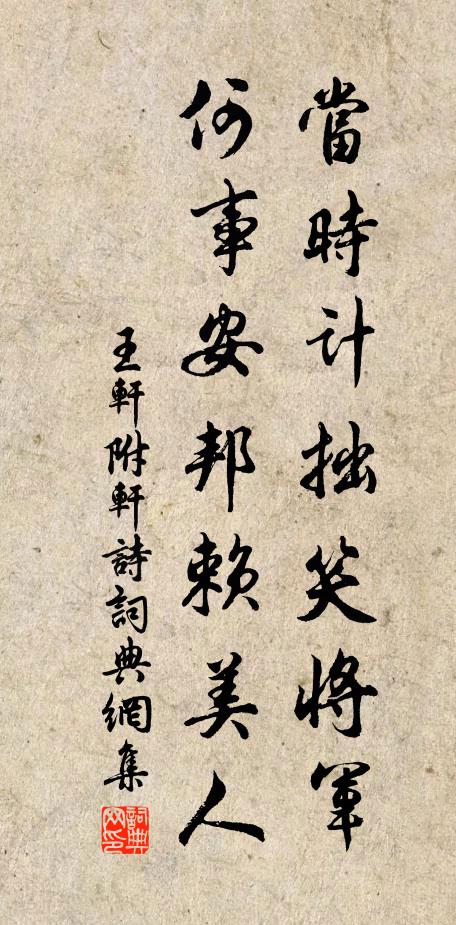 當時計拙笑將軍
何事安邦賴美人
王軒附軒詩詞典網集
詞典网印